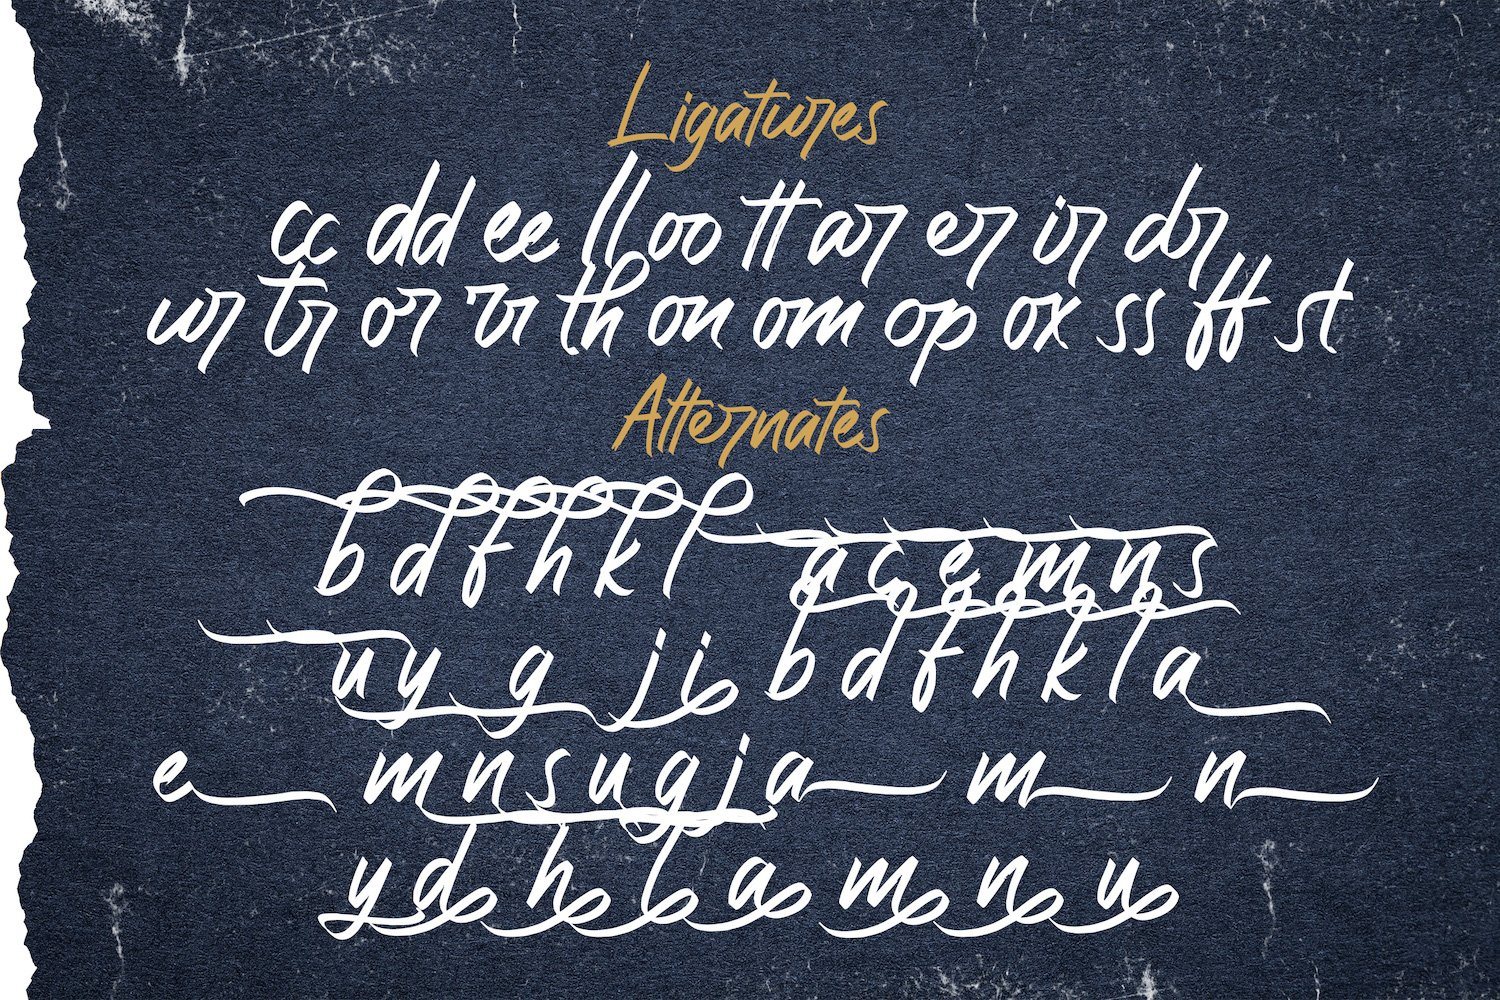 Ligatures
cc dd ee ll oo tt ar er ir dr
ur tr or rr th on om op ox ss ff st
Alternates
b d f h k l a c e m n s
u y g j i b d f h k l a
e m n s u g j a m n
y d h l a m n u